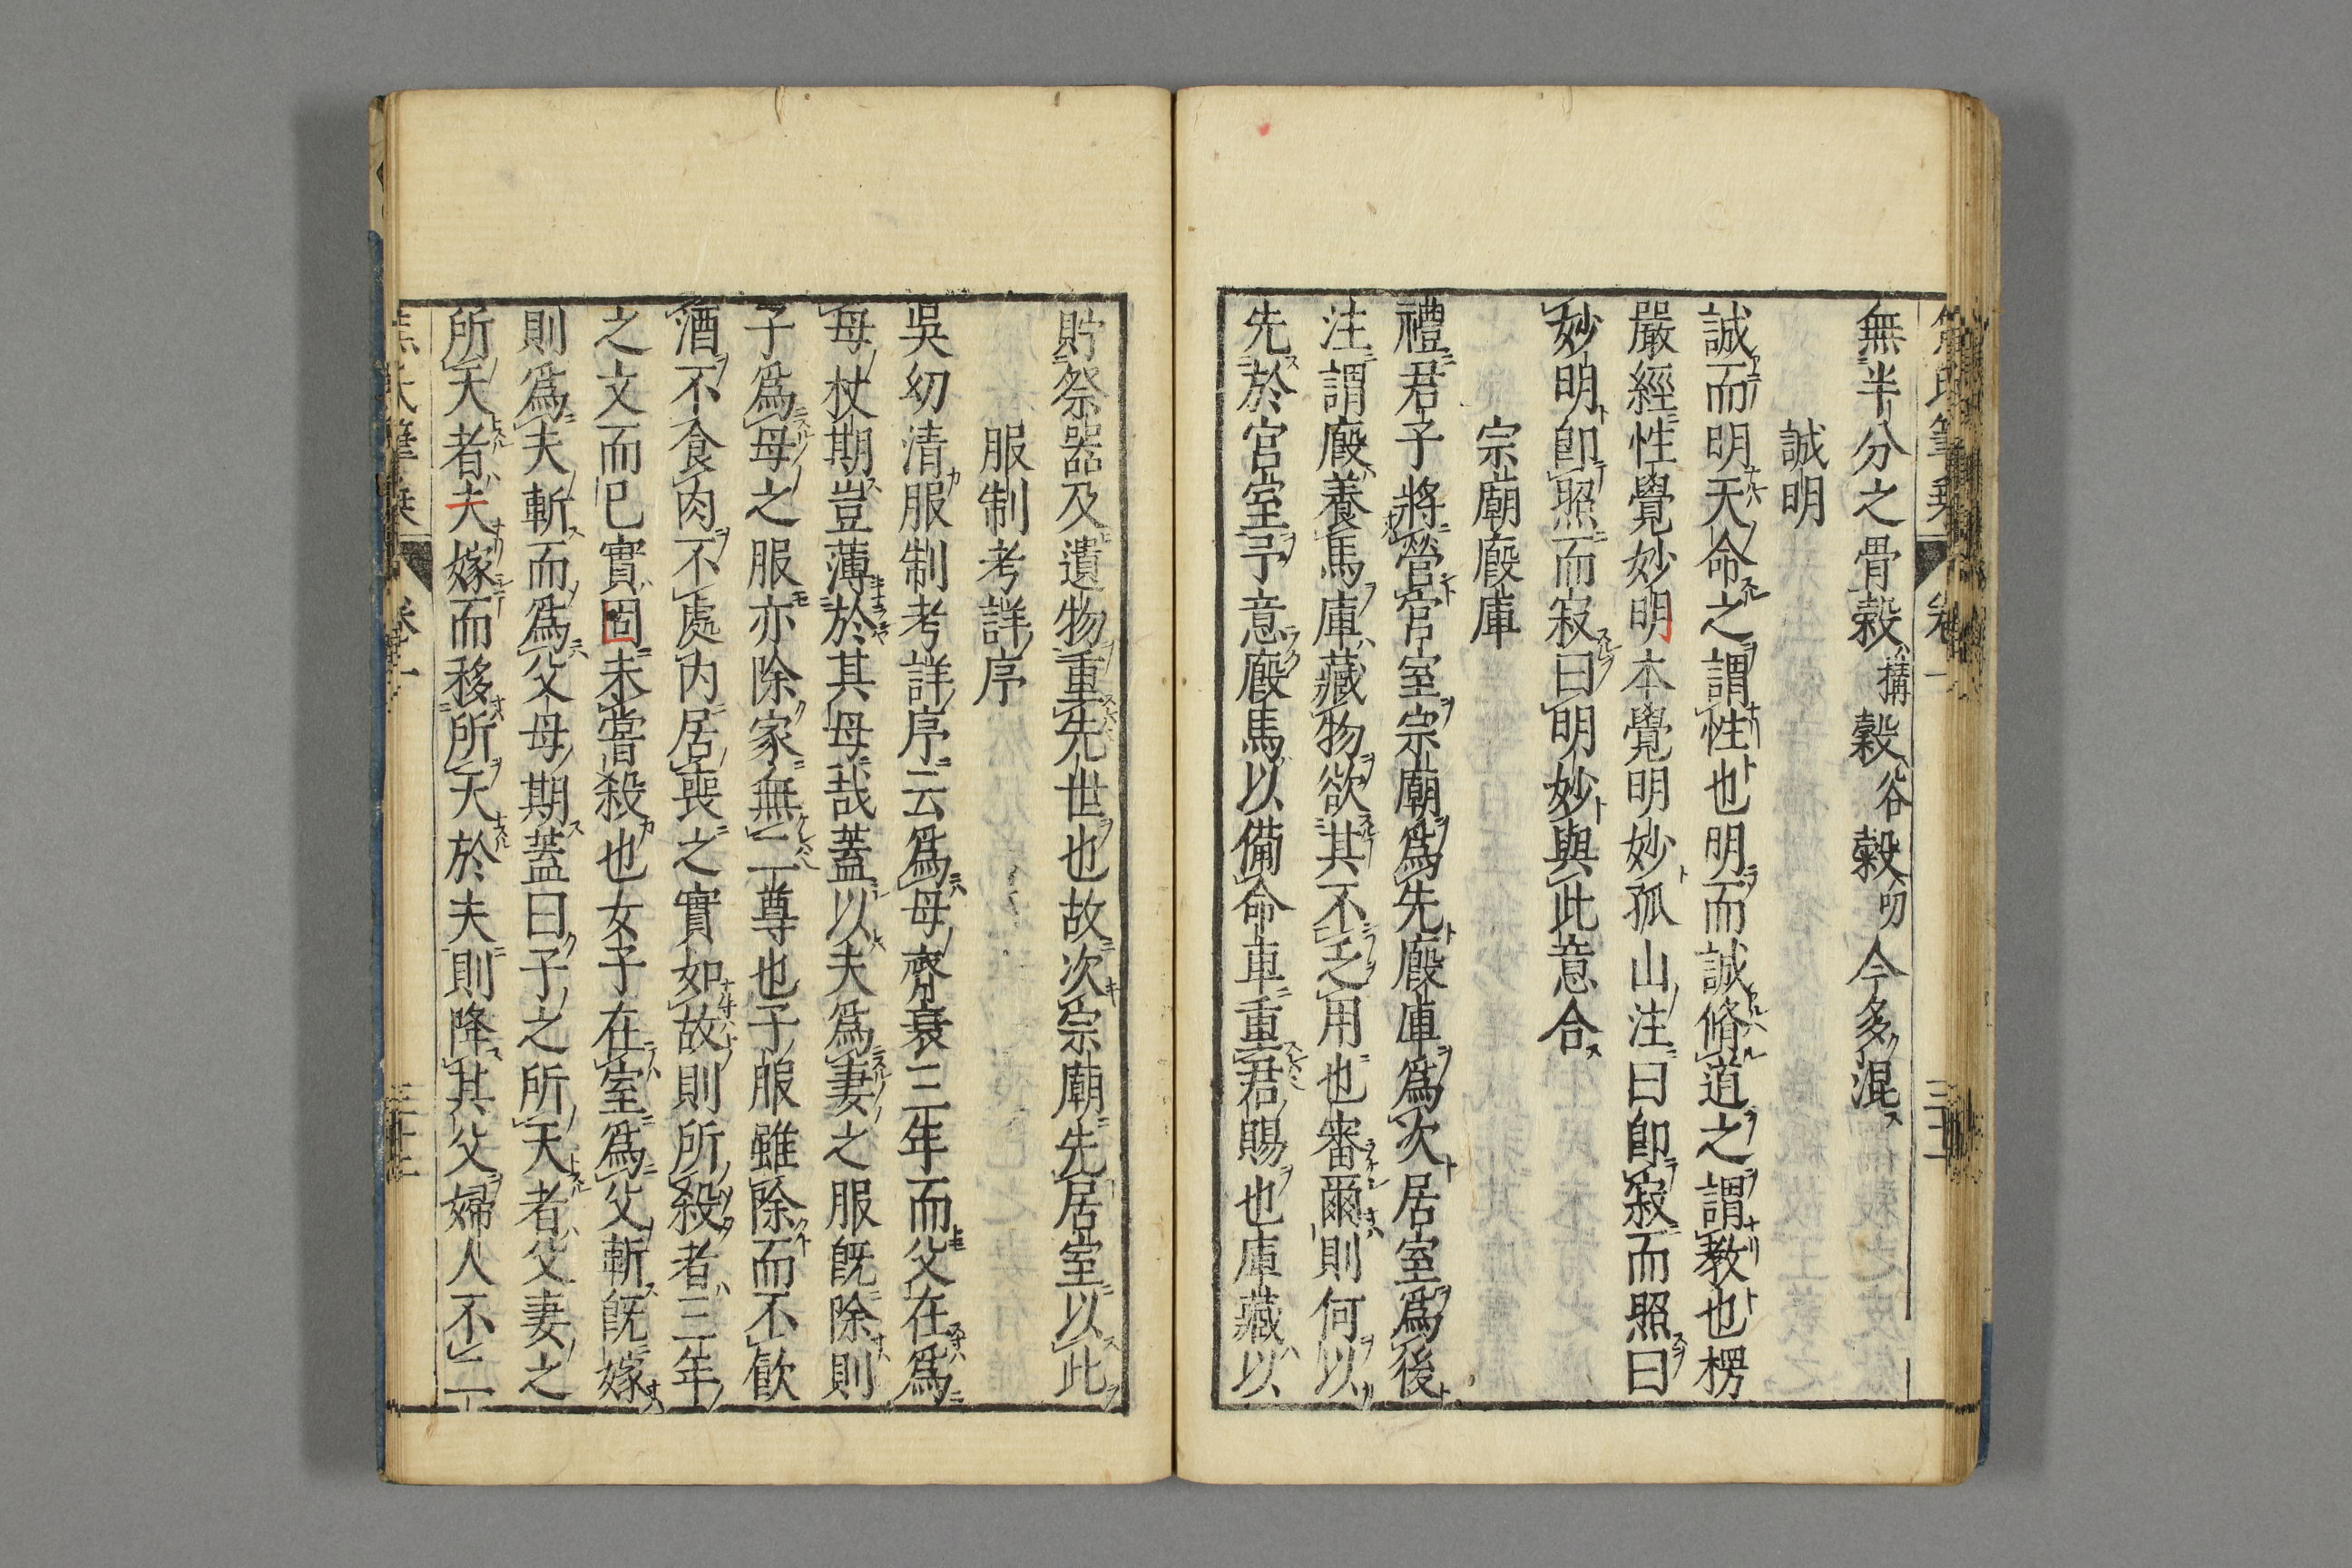 無半分之骨榖搆穀谷㝅叨今多混
誠明
誠而明天命之謂性也明而誠脩道之謂教也楞
嚴經性覺妙明本覺明妙孤山注曰卽寂而照曰
妙明卽照而寂曰明妙與此意合
宗廟廄庫
禮君子將營宮室宗廟爲先廄庫爲次居室爲後
注謂廄養馬庫藏物欲其不乏用也審爾則何以
先於宮室予意廄馬以備命車重君賜也庫藏以
貯祭器及遺物重先世也故次宗廟先居室以此
服制考詳序
吳幼清服制考詳序云爲母齊衰三年而父在爲
母杖期豈薄於其母哉蓋以夫爲妻之服旣除則
子爲母之服亦除家無二尊也子服雖除而不飲
酒不食肉不處內居喪之實如故則所殺者三年
之文而已實固未嘗殺也女子在室爲父斬旣嫁
則爲夫斬而爲父母期蓋曰子之所天者父妻之
所天者夫嫁而移所天於夫則降其父婦人不二
焦氏筆乘 卷一 三十二